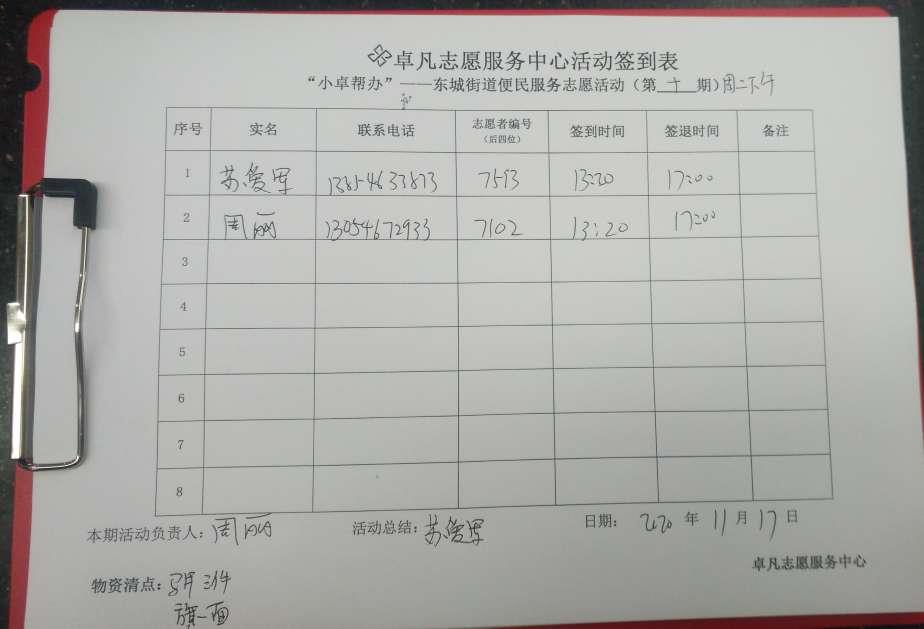 卓凡志愿服务中心活动签到表
“小卓帮办”——东城街道便民服务志愿活动（第十期）周二下午
序号 实名 联系电话 志愿者编号（后四位） 签到时间 签退时间 备注
1 苏爱军 13854633873 7513 13:20 17:00
2 周丽 13054672933 7102 13:20 17:00
3
4
5
6
7
8
本期活动负责人：周丽 活动总结：苏爱军 日期：2020年11月17日
卓凡志愿服务中心
物资清点：马甲三件
旗一面